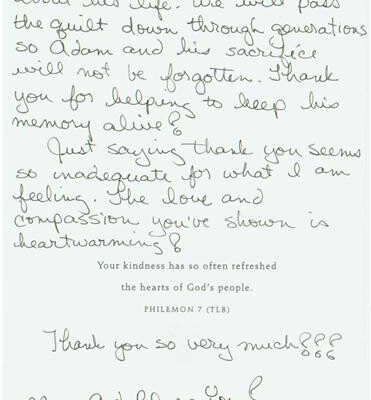 about his life. We will pass
the quilt down through generations
so Adam and his sacrifice
will not be forgotten. Thank
you for helping to keep his
memory alive!
Just saying thank you seems
so inadequate for what I am
feeling. The love and
compassion you've shown is
heartwarming!
Your kindness has so often refreshed
the hearts of God's people.
PHILEMON 7 (TLB)
Thank you so very much!!!
You!